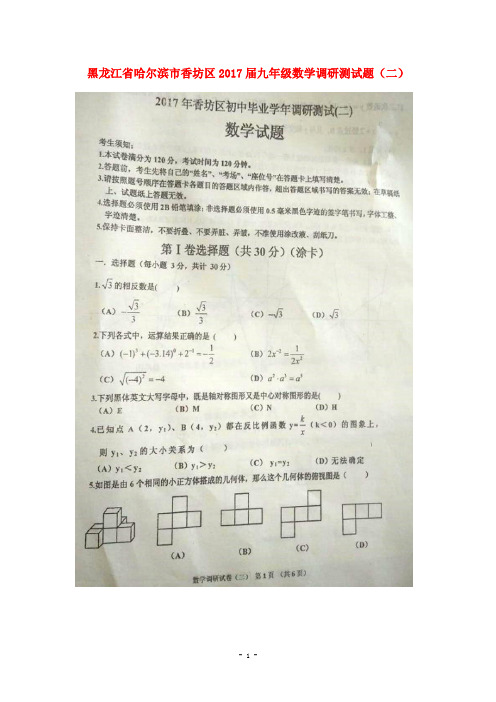 黑龙江省哈尔滨市香坊区2017届九年级数学调研测试题（二）
2017年香坊区初中毕业学年调研测试(二)
数学试题
考生须知：
1.本试卷满分为120分，考试时间为120分钟。
2.答题前，考生先将自己的“姓名”、“考场”、“座位号”在答题卡上填写清楚。
3.请按照题号顺序在答题卡各题目的答题区域内作答，超出答题区域书写的答案无效；在草稿纸
上、试题纸上答题无效。
4.选择题必须使用2B铅笔填涂；非选择题必须使用0.5毫米黑色字迹的签字笔书写，字体工整、
字迹清楚。
5.保持卡面整洁，不要折叠、不要弄脏、弄皱，不准使用涂改液、刮纸刀。
第Ⅰ卷选择题（共30分）（涂卡）
一．选择题（每小题3分，共计30分）
1.√3的相反数是( )
(A) -√3/3 (B) √3/3 (C) -√3 (D) √3
2.下列各式中，运算结果正确的是（ ）
(A) (-1)³+(-3.14)⁰+2⁻¹=-1/2 (B) 2x⁻²=1/(2x²)
(C) √(-4)²=-4 (D)
3.下列黑体英文大写字母中，既是轴对称图形又是中心对称图形的是( )
(A) E (B) M (C) N (D) H
4.已知点A（2，y₁）、B（4，y₂）都在反比例函数y=k/x（k<0）的图象上，
则y₁、y₂的大小关系为（ ）
(A) y₁<y₂ (B) y₁>y₂ (C) y₁=y₂ (D) 无法确定
5.如图是由6个相同的小正方体搭成的几何体，那么这个几何体的俯视图是（ ）
(A) (B) (C) (D)
数学调研试卷（二） 第1页 （共6页）
- 1 -